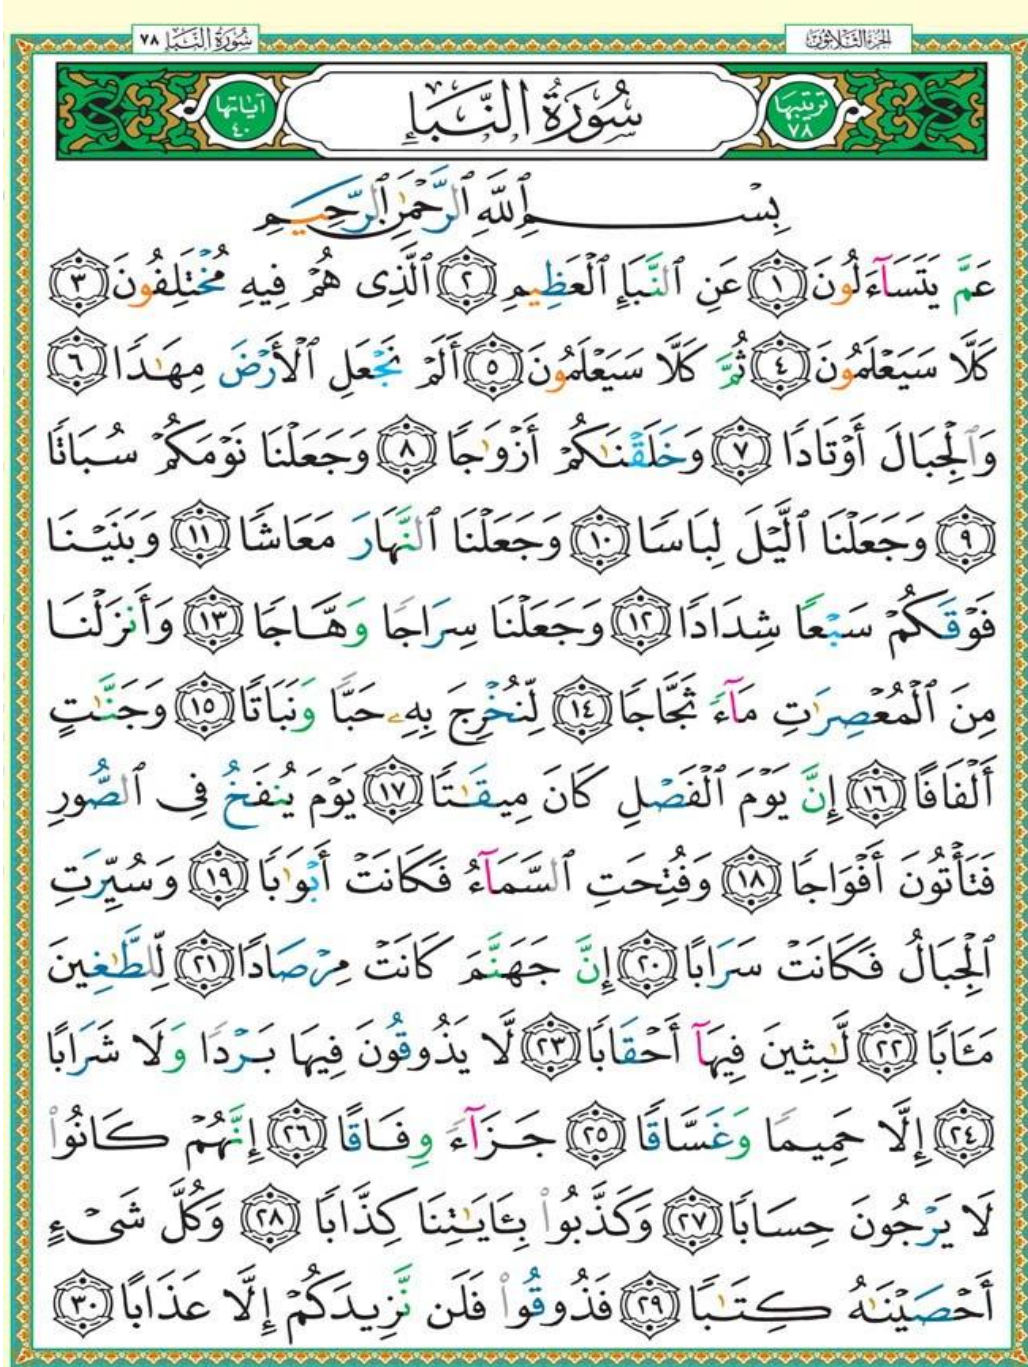 الجزء الثلاثون
سُورَةُ النَّبَإِ ٧٨
ترتيبها ٧٨
سُورَةُ النَّبَإِ
آياتها ٤٠
بِسْمِ ٱللَّهِ ٱلرَّحْمَٰنِ ٱلرَّحِيمِ
عَمَّ يَتَسَآءَلُونَ ١ عَنِ ٱلنَّبَإِ ٱلْعَظِيمِ ٢ ٱلَّذِى هُمْ فِيهِ مُخْتَلِفُونَ ٣
كَلَّا سَيَعْلَمُونَ ٤ ثُمَّ كَلَّا سَيَعْلَمُونَ ٥ أَلَمْ نَجْعَلِ ٱلْأَرْضَ مِهَٰدًا ٦
وَٱلْجِبَالَ أَوْتَادًا ٧ وَخَلَقْنَٰكُمْ أَزْوَٰجًا ٨ وَجَعَلْنَا نَوْمَكُمْ سُبَاتًا
٩ وَجَعَلْنَا ٱلَّيْلَ لِبَاسًا ١٠ وَجَعَلْنَا ٱلنَّهَارَ مَعَاشًا ١١ وَبَنَيْنَا
فَوْقَكُمْ سَبْعًا شِدَادًا ١٢ وَجَعَلْنَا سِرَاجًا وَهَّاجًا ١٣ وَأَنزَلْنَا
مِنَ ٱلْمُعْصِرَٰتِ مَآءً ثَجَّاجًا ١٤ لِّنُخْرِجَ بِهِۦ حَبًّا وَنَبَاتًا ١٥ وَجَنَّٰتٍ
أَلْفَافًا ١٦ إِنَّ يَوْمَ ٱلْفَصْلِ كَانَ مِيقَٰتًا ١٧ يَوْمَ يُنفَخُ فِى ٱلصُّورِ
فَتَأْتُونَ أَفْوَاجًا ١٨ وَفُتِحَتِ ٱلسَّمَآءُ فَكَانَتْ أَبْوَٰبًا ١٩ وَسُيِّرَتِ
ٱلْجِبَالُ فَكَانَتْ سَرَابًا ٢٠ إِنَّ جَهَنَّمَ كَانَتْ مِرْصَادًا ٢١ لِّلطَّٰغِينَ
مَـَٔابًا ٢٢ لَّٰبِثِينَ فِيهَآ أَحْقَابًا ٢٣ لَّا يَذُوقُونَ فِيهَا بَرْدًا وَلَا شَرَابًا
٢٤ إِلَّا حَمِيمًا وَغَسَّاقًا ٢٥ جَزَآءً وِفَاقًا ٢٦ إِنَّهُمْ كَانُوا۟
لَا يَرْجُونَ حِسَابًا ٢٧ وَكَذَّبُوا۟ بِـَٔايَٰتِنَا كِذَّابًا ٢٨ وَكُلَّ شَىْءٍ
أَحْصَيْنَٰهُ كِتَٰبًا ٢٩ فَذُوقُوا۟ فَلَن نَّزِيدَكُمْ إِلَّا عَذَابًا ٣٠